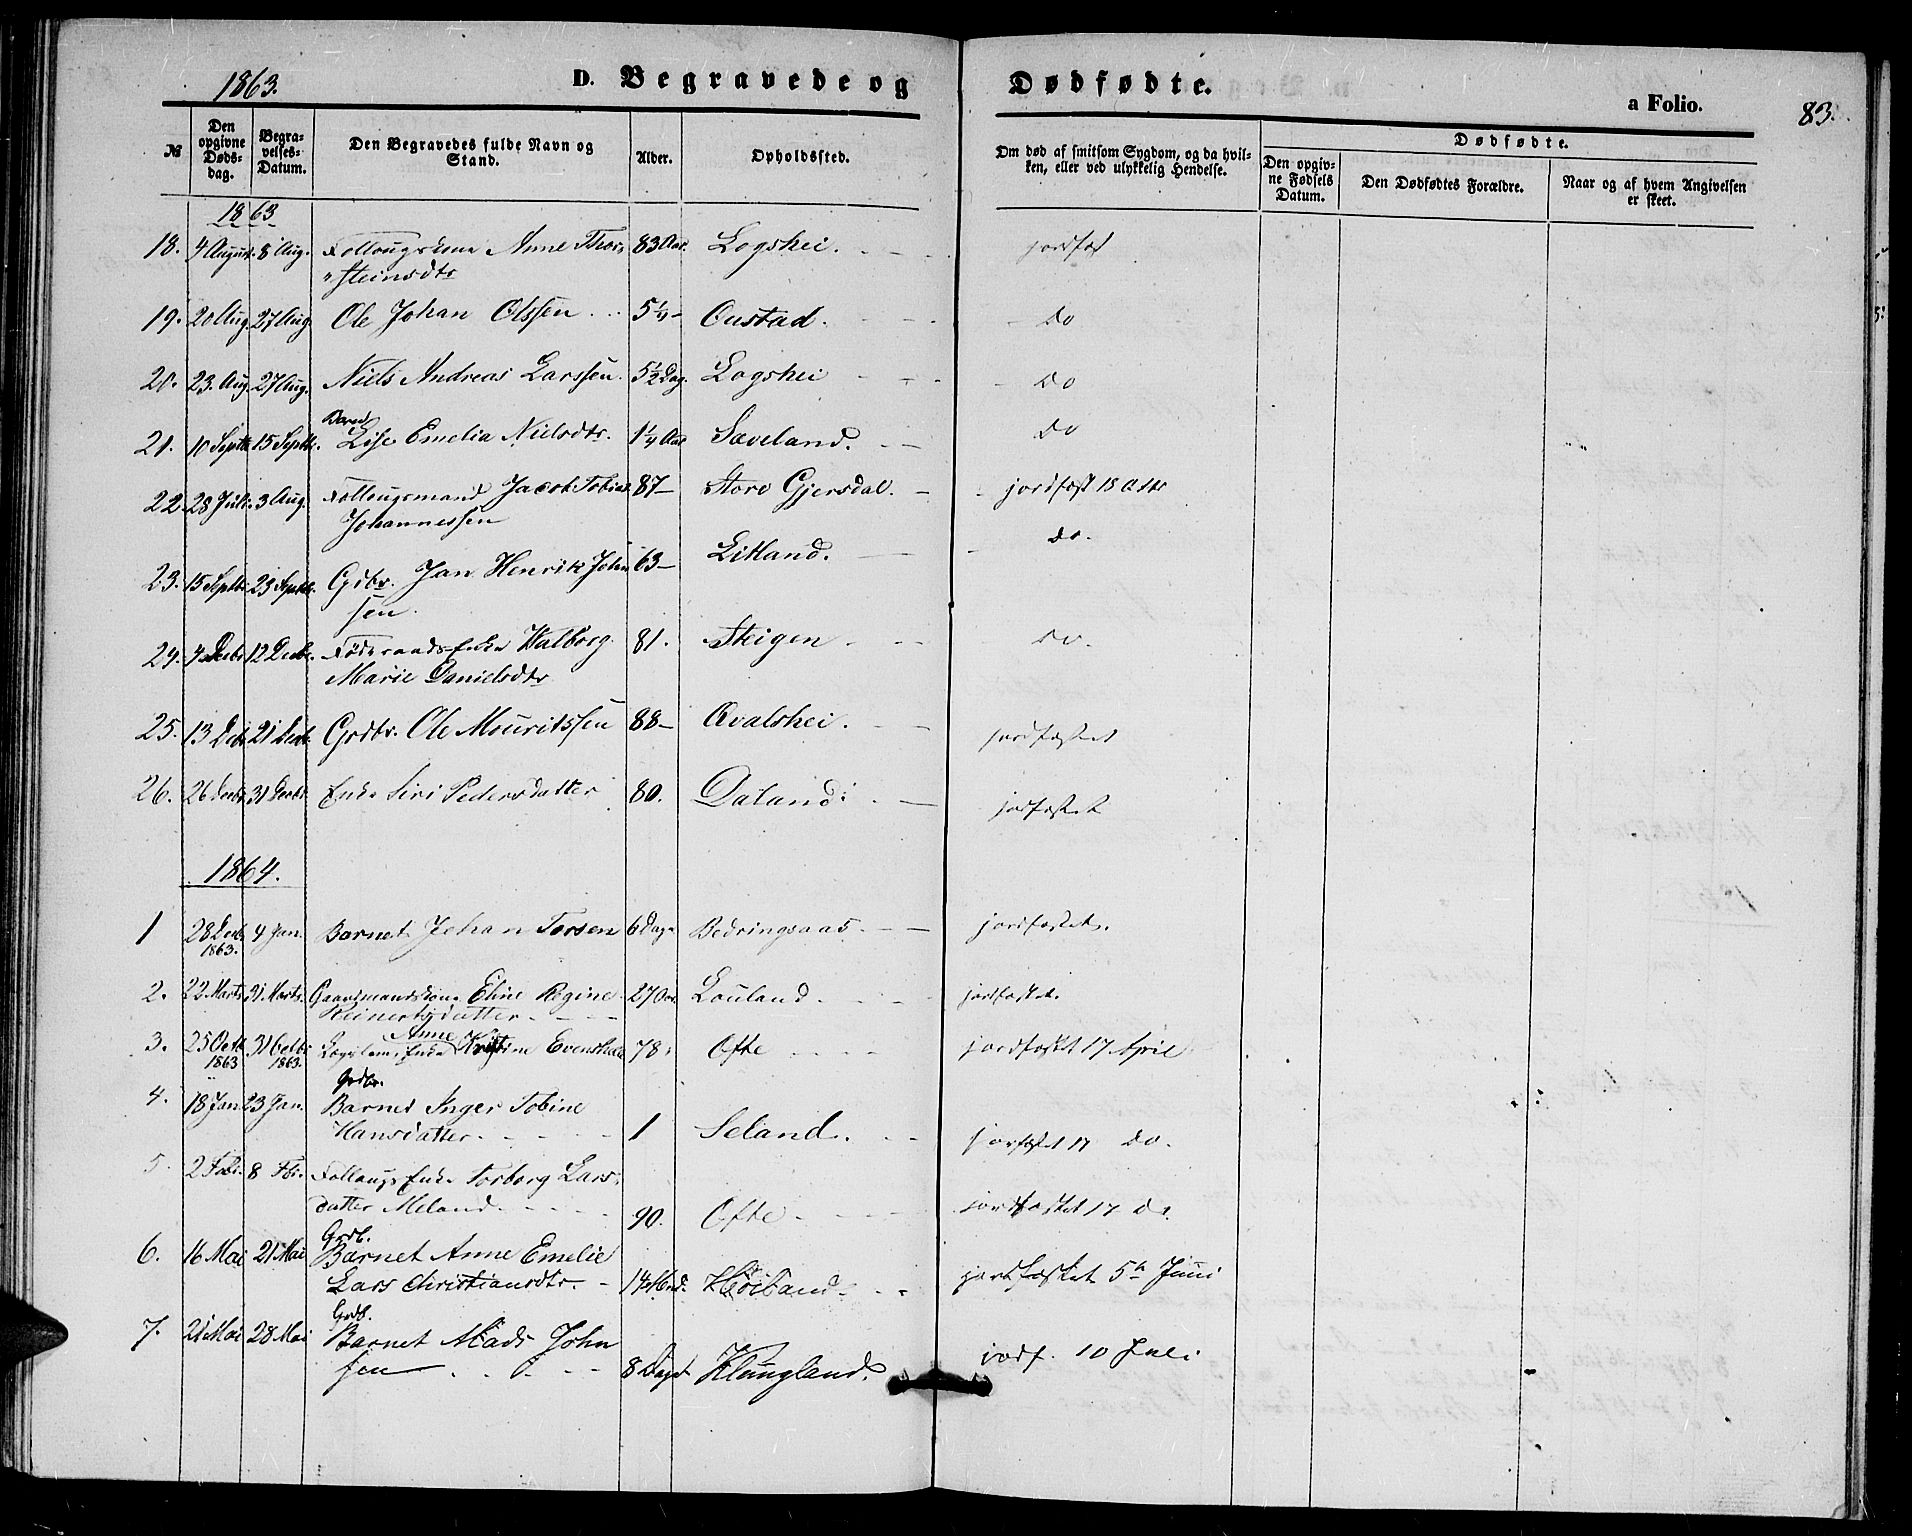 1863.
D. Begravede og Dødfødte.
a Folio.
83.
№
Den opgivne Døds-dag.
Begra-velses-Datum.
Den Begravedes fulde Navn og Stand.
Alder.
Opholdssted.
Om død af smitsom Sygdom, og da hvil-ken, eller ved ulykkelig Hendelse.
Dødfødte.
Den opgiv-ne Fødsels Datum.
Den Dødfødtes Forældre.
Naar og af hvem Angivelsen er skeet.
1863
18. 4 August. 8 Aug. Anne Thor- 83 Aar. Logshei. jordfæst
steinsdtr
19. 20 Aug. 27 Aug. Ole Johan Olssen 5 1/4 - Oustad. do
20. 23. Aug. 27 Aug. Niels Andreas Larssen 5 1/2 Dag. Logshei do
Barnet
21. 10 Septbr 15 Septbr. Lise Emelia Nielsdtr. 1 1/4 Aar Sæveland. do
22. 28 Juli 3 Aug. Follougsmand Jacob Tobias 87- Store Gjersdal. jordfæst 18 Octbr
Johannessen
23. 15 Septbr 23 Septbr. Grdbr. Jan Henrik John 63- Litland. do.
sen.
24. 4 Decbr 12 Decbr. Føderaads Enke Walborg 81. Steigen do.
Marie Danielsdtr
25. 13 Decbr 21 Decbr. Grdbr. Ole Mouritssen 88- Qvalshei. jordfæstet
26. 26 Decbr 31 Decbr Enke Siri Pedersdatter 80. Daland. jordfæstet
1864.
1 28 Decbr 1863. 4 Jan. Barnet Johan Torsen 6 Dage Bedringsaas jordfæstet.
2. 22 Marts 31 Marts. Gaardmandskone Eline Regine 27 Aar. Louland jordfæstet.
Reinertsdatter
3. 25 Octbr 1863 31 Octbr 1863. Enke Anne Kristine 78. Ofte jordfæstet 17 April
Grdbr.
4. 18 Jan 23 Jan. Barnet Inger Tobine
Hansdatter 1 Seland. jorfæstet 17 do.
5. 2 Febr. 8 Fbr. Follougs Enke Torborg Lars-
datter Meland 90. Ofte jordfæstet 17 do.
Grdb.
6. 16 Mai 21 Mai Barnet Anne Emelie
Lars Christiansdtr. 14 Mnd. Høiland jordfæstet 5te Juni
Grdb.
7. 21 Mai 28 Mai Barnet Mads John
sen 8 Dage Klungland. jordf. 10 Juli